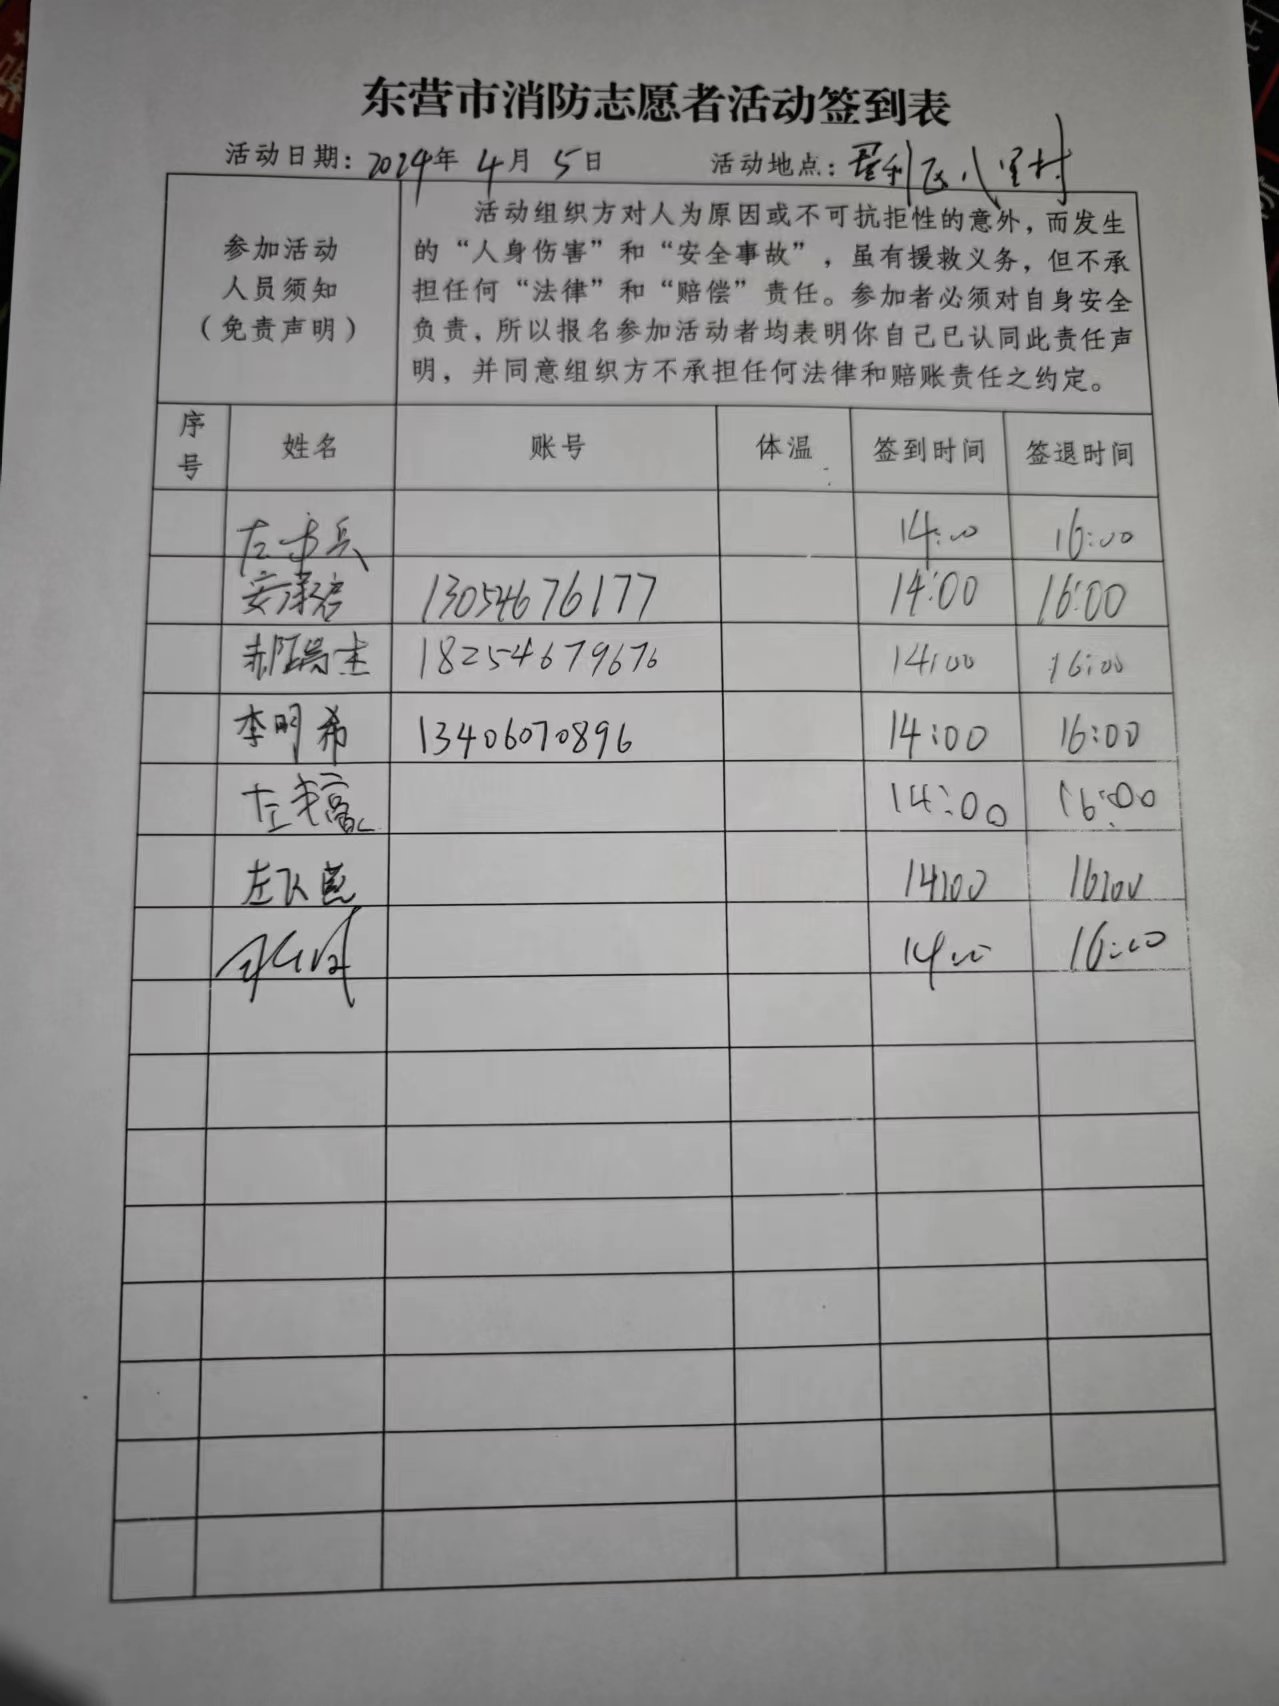 东营市消防志愿者活动签到表
活动日期：2024年 4月 5日 活动地点：垦利区八里村
参加活动
人员须知
（免责声明）
活动组织方对人为原因或不可抗拒性的意外，而发生
的“人身伤害”和“安全事故”，虽有援救义务，但不承
担任何“法律”和“赔偿”责任。参加者必须对自身安全
负责，所以报名参加活动者均表明你自己已认同此责任声
明，并同意组织方不承担任何法律和赔账责任之约定。
序号 姓名 账号 体温 签到时间 签退时间
左 兵 14:00 16:00
安 13054676177 14:00 16:00
18254679676 14:00 16:00
李明希 13406070896 14:00 16:00
左 14:00 16:00
左 14:00 16:00
14:00 16:00